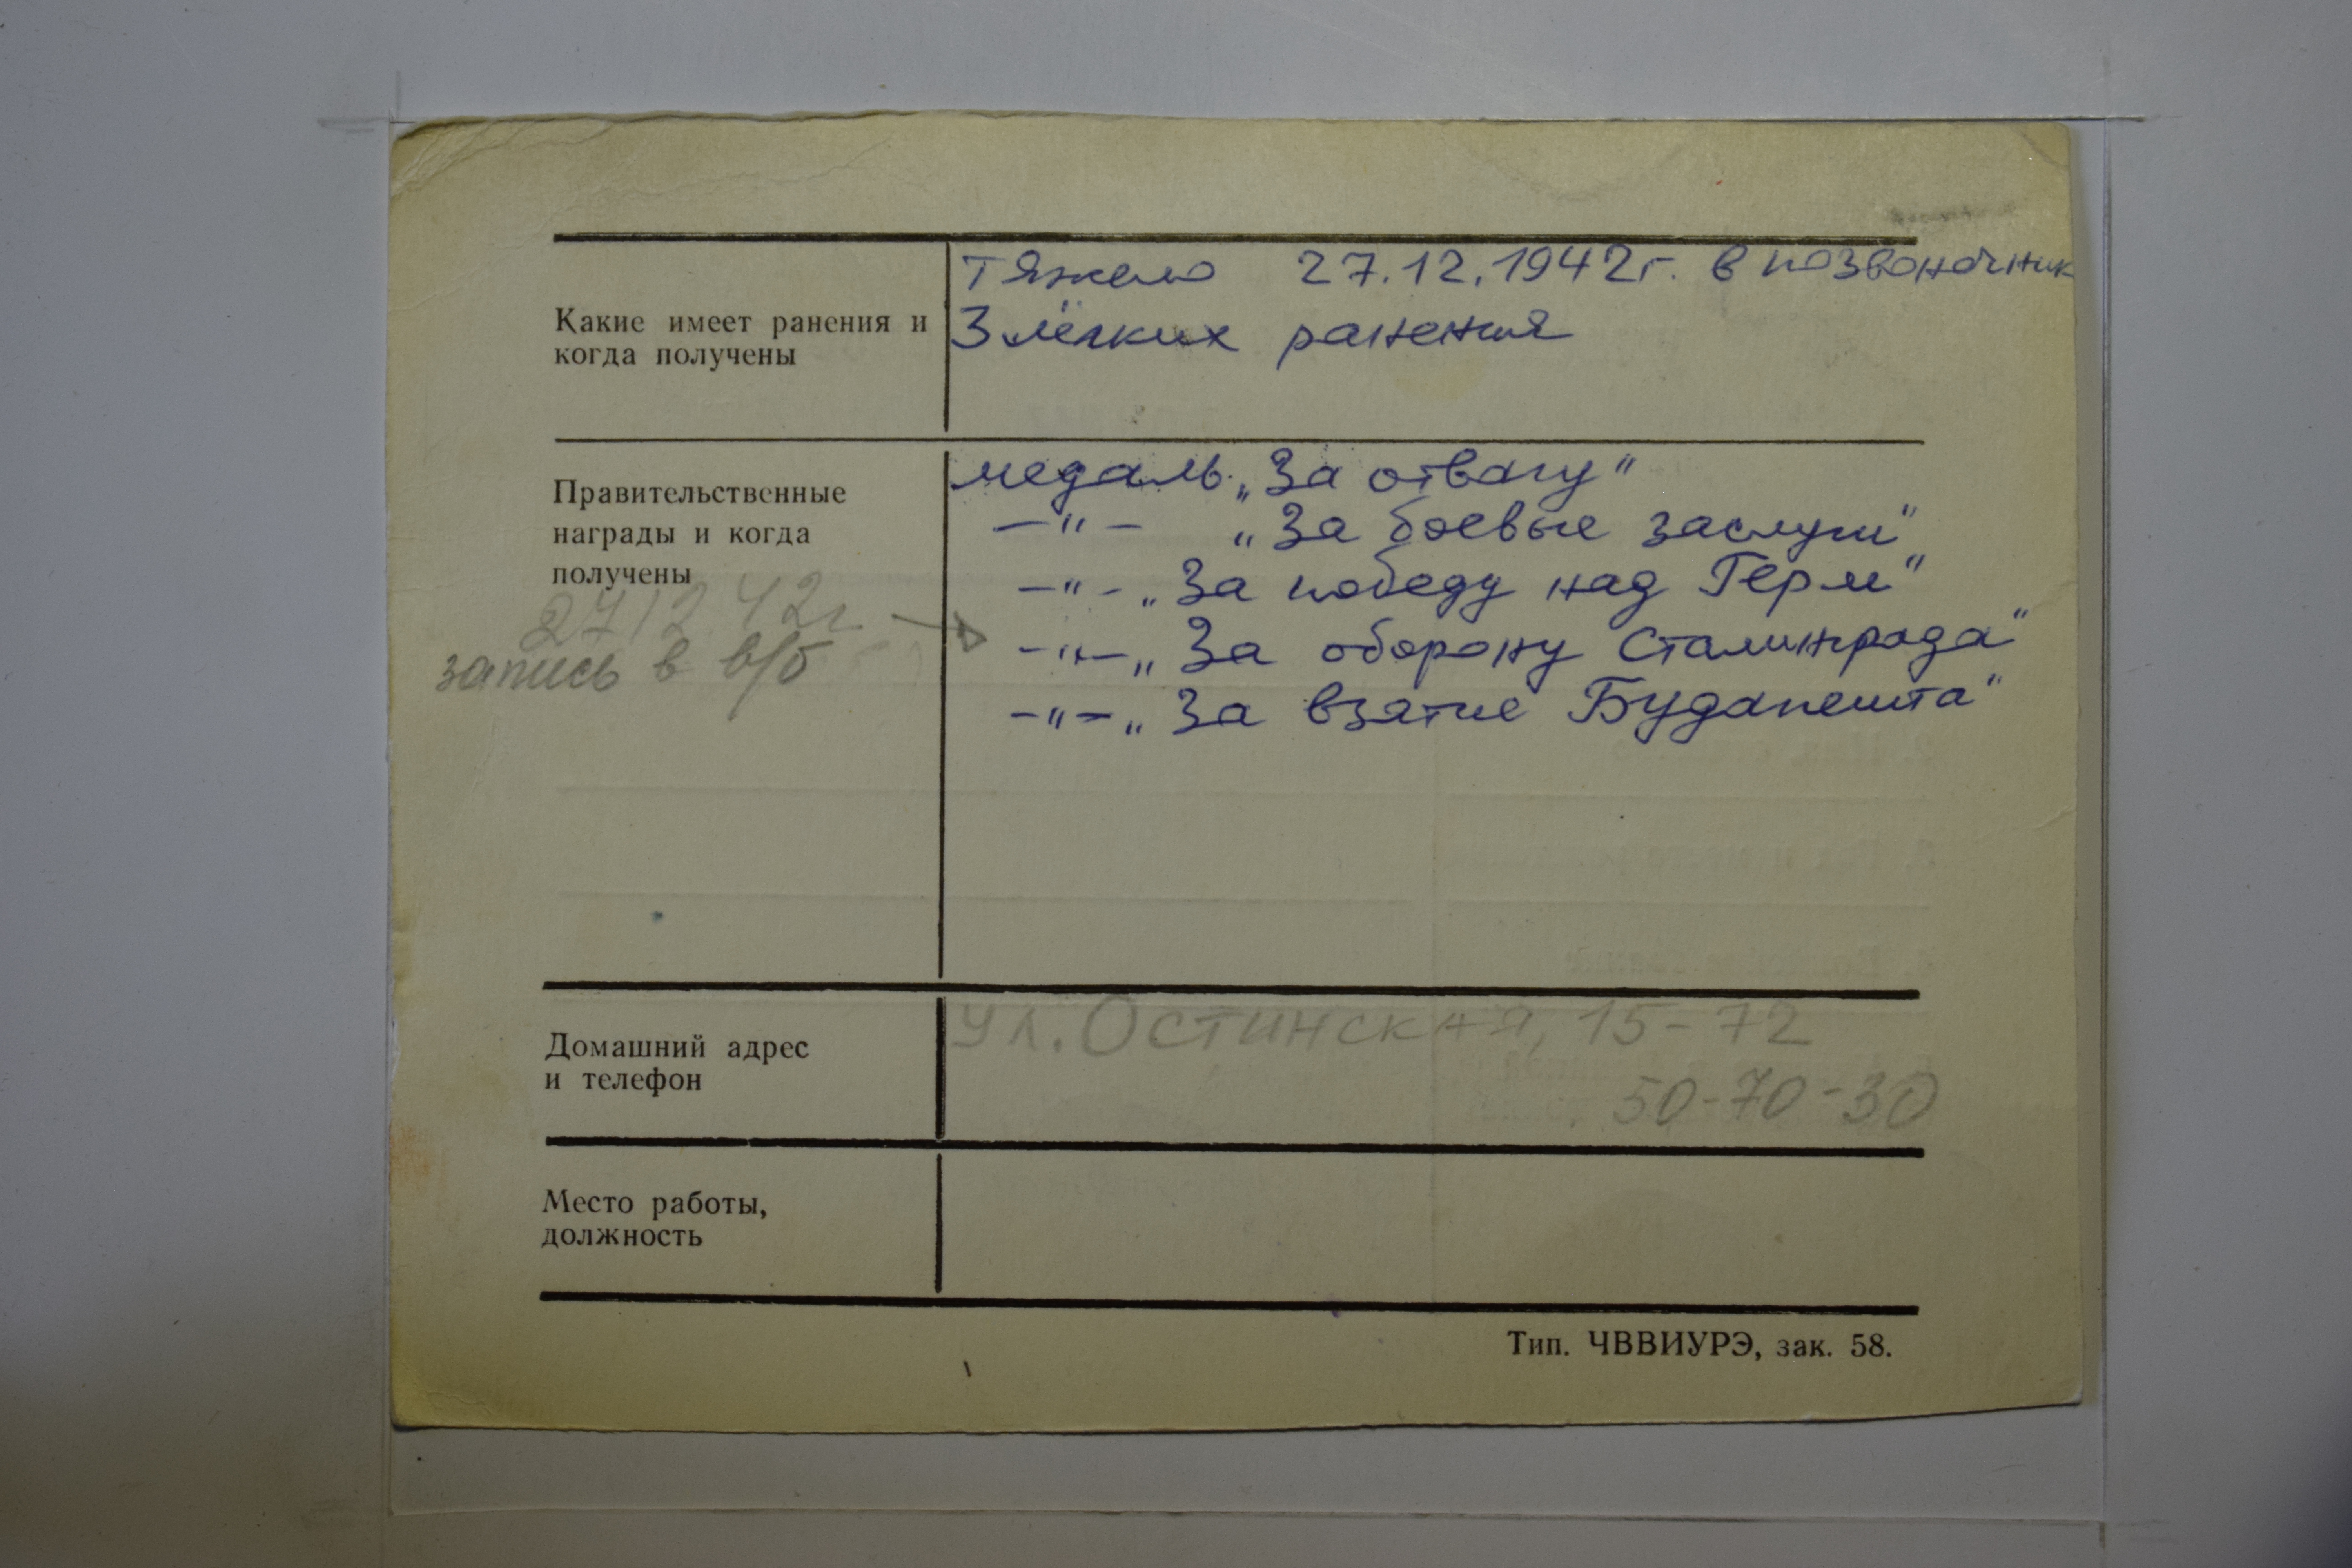 Какие имеет ранения и
когда получены
Тяжело 27.12.1942г. в позвоночник
3 лёгких ранения
Правительственные
награды и когда
получены
27 12 42г
запись в в/б
медаль „За отвагу"
—"— „За боевые заслуги"
—"— „За победу над Герм"
—"— „За оборону Сталинграда"
—"— „За взятие Будапешта"
Домашний адрес
и телефон
ул. Остинская, 15-72
50-70-30
Место работы,
должность
Тип. ЧВВИУРЭ, зак. 58.